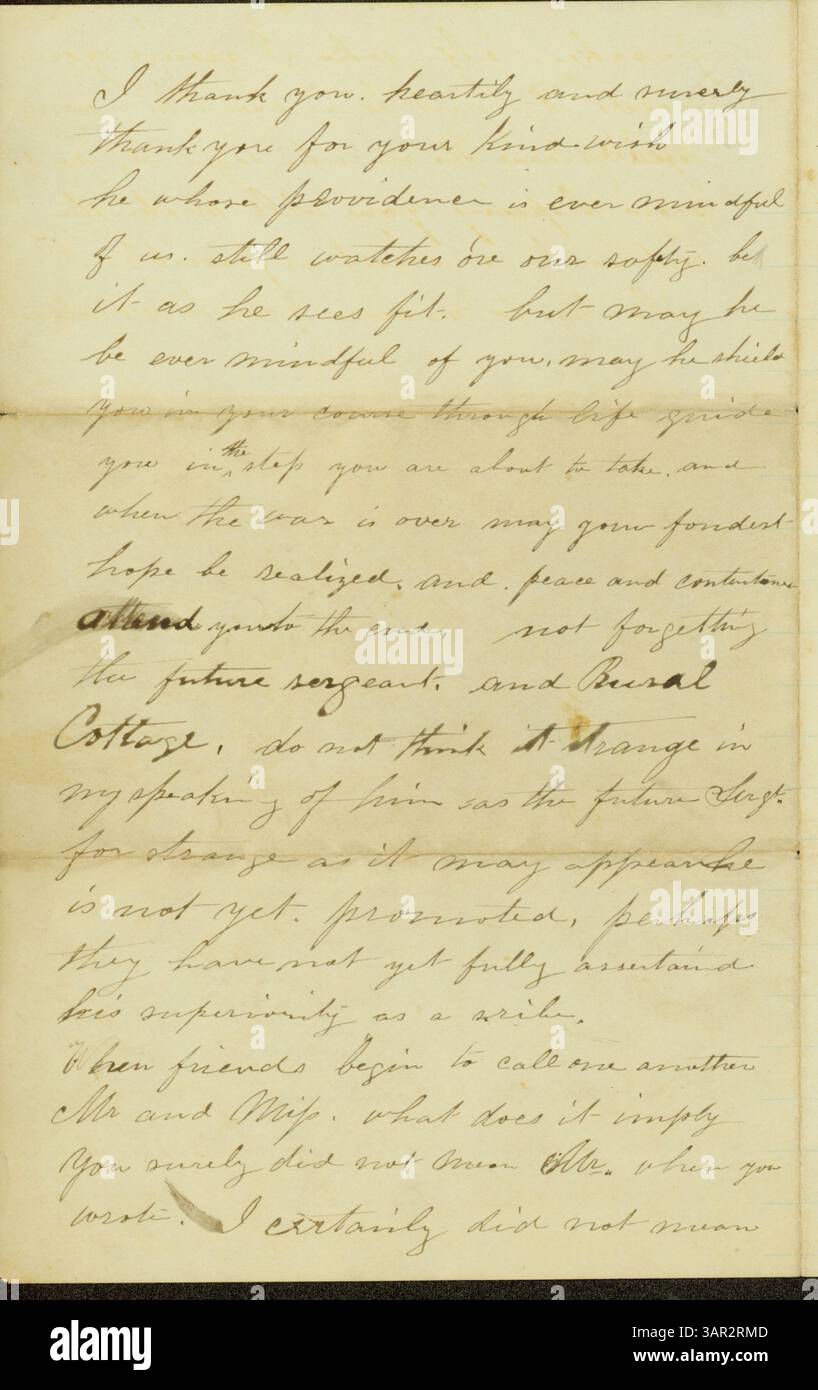 I thank you. heartily and surerly
thank you for your kind wish
he whose providence is ever mindful
of us. still watches o're our safty. be
it as he sees fit. but may he
be ever mindful of you, may he shield
you in your course through life guide
you in the step you are about to take. and
when the war is over may your fondest
hope be realized. and. peace and contentment
attend you to the end. not forgetting
the future sergeant. and Rural
Cottage, do not think it strange in
my speaking of him as the future Sergt.
for strange as it may appear he
is not yet. promoted, perhaps
they have not yet fully assertaind
his superiority as a scribe.
When friends begin to call one another
Mr and Miss. what does it imply
You surely did not mean Mr. when you
wrote. I certainly did not mean
alamy
alamy
Image ID: 3AR2RMD
www.alamy.com